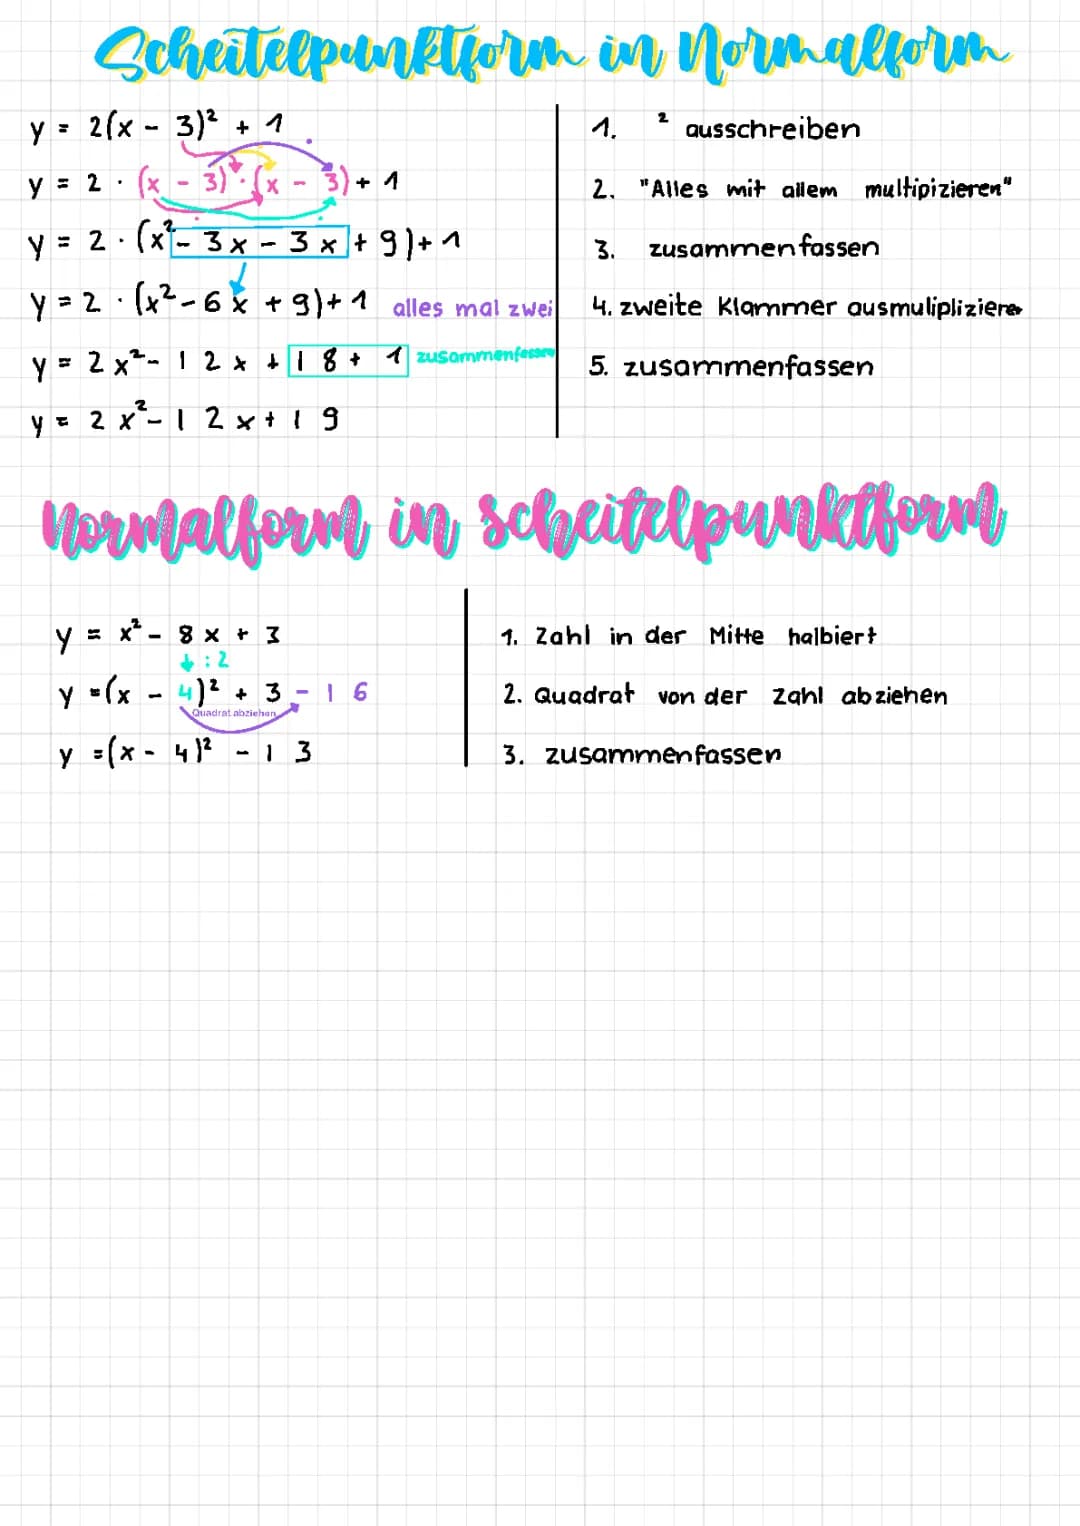 Scheitelpunktform in Normalform
y = 2(x - 3)² + 1
y = 2 · (x - 3) · (x - 3) + 1
y = 2 · (x² - 3x - 3x + 9) + 1
y = 2 · (x² - 6x + 9) + 1 alles mal zwei
y = 2x² - 12x + 18 + 1 zusammenfassen
y = 2x² - 12x + 19
1. ² ausschreiben
2. "Alles mit allem multipizieren"
3. zusammenfassen
4. zweite Klammer ausmulipliziere
5. zusammenfassen
Normalform in scheitelpunktform
y = x² - 8x + 3
↓ : 2
y = (x - 4)² + 3 - 16
Quadrat abziehen
y = (x - 4)² - 13
1. Zahl in der Mitte halbiert
2. Quadrat von der Zahl abziehen
3. zusammenfassen